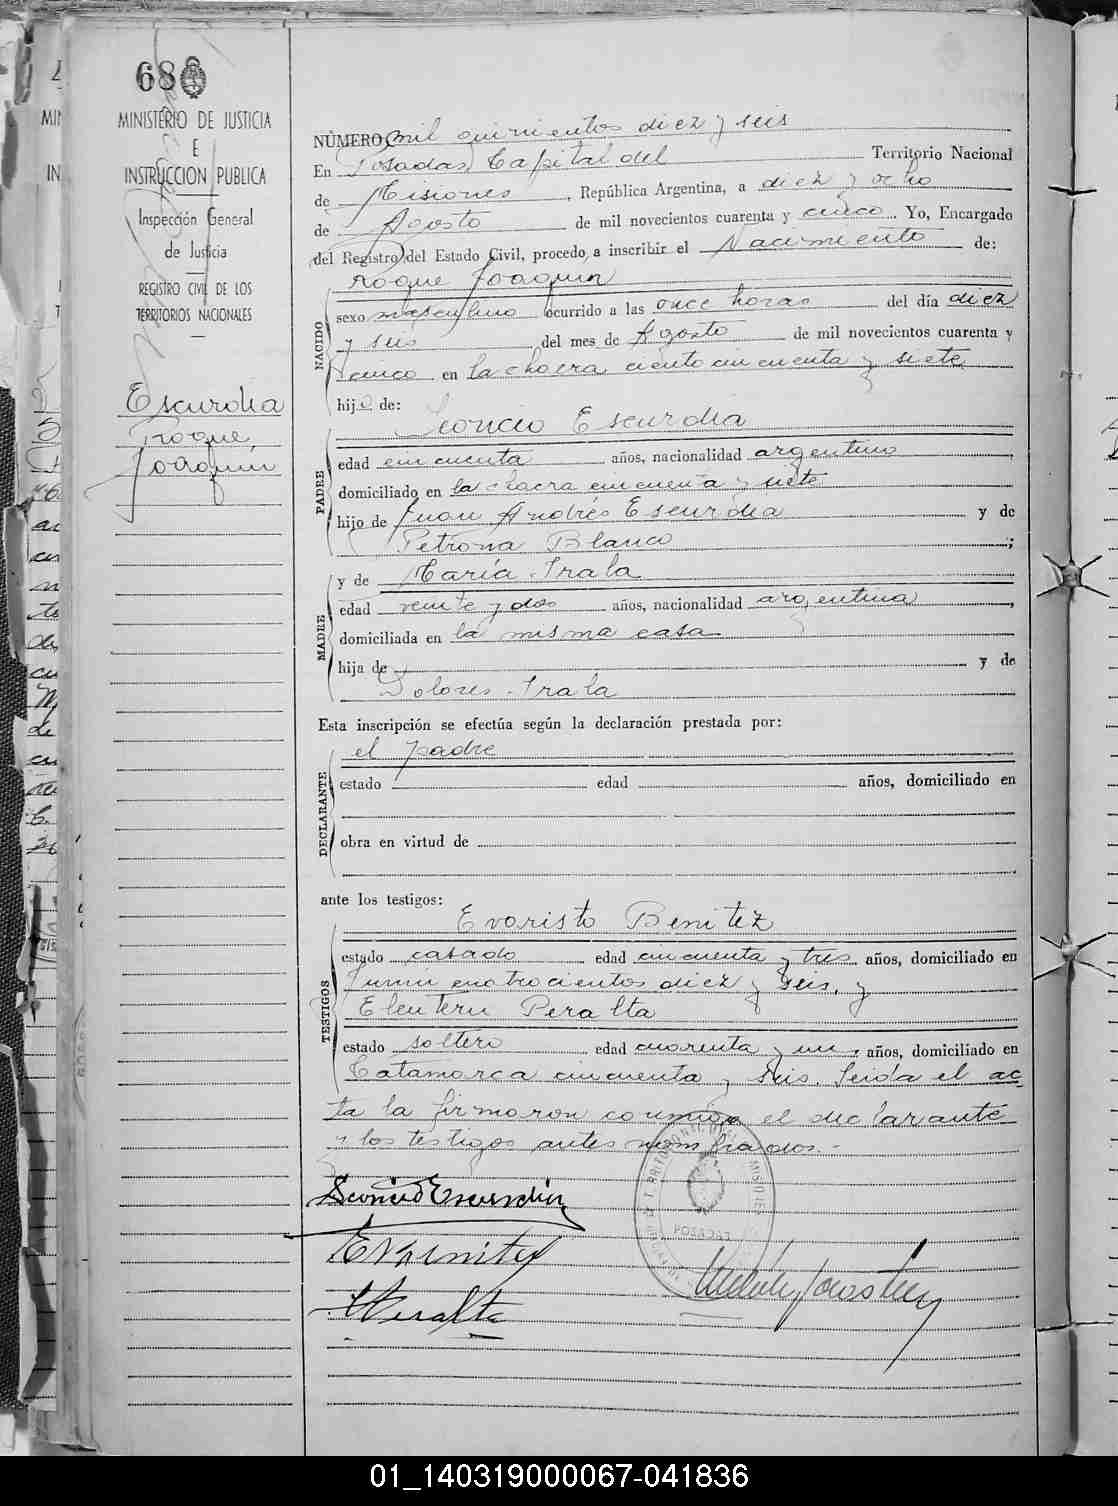 68
MINISTERIO DE JUSTICIA
E
INSTRUCCION PUBLICA
Inspección General
de Justicia
REGISTRO CIVIL DE LOS
TERRITORIOS NACIONALES
Escurdia
Roque
Joaquín
NÚMERO mil quinientos diez y seis
En Posadas, Capital del Territorio Nacional
de Misiones, República Argentina, a diez y ocho
de Agosto de mil novecientos cuarenta y cinco. Yo, Encargado
del Registro del Estado Civil, procedo a inscribir el Nacimiento de:
Roque Joaquin
NACIDO
sexo masculino ocurrido a las once horas del día diez
y seis, del mes de Agosto de mil novecientos cuarenta y
cinco en la chacra ciento cincuenta y siete
hijo de:
Leoncio Escurdia
PADRE
edad cincuenta años, nacionalidad argentino
domiciliado en la chacra cincuenta y siete
hijo de Juan Andrés Escurdia y de
Petrona Blanco;
y de María Irala
MADRE
edad veinte y dos años, nacionalidad argentina,
domiciliada en la misma casa
hija de y de
Dolores Irala
Esta inscripción se efectúa según la declaración prestada por:
el padre
DECLARANTE
estado edad años, domiciliado en
obra en virtud de
ante los testigos:
Evaristo Benitez
TESTIGOS
estado casado edad cincuenta y tres años, domiciliado en
Junin cuatrocientos diez y seis, y
Eleuterio Peralta
estado soltero edad cuarenta y un, años, domiciliado en
Catamarca cincuenta y seis. Leida el ac
ta la firmaron conmigo el declarante
y los testigos antes nombrados.-
Leoncio Escurdia
EBenitez
EPeralta
POSADAS
01_140319000067-041836